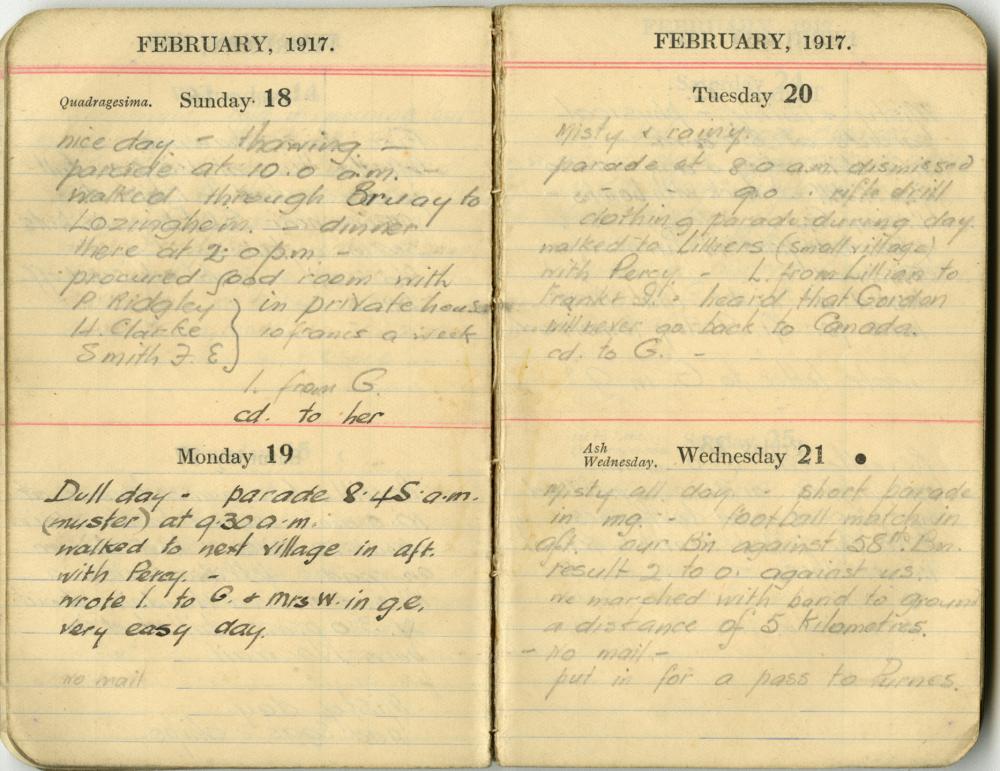 FEBRUARY, 1917.
Quadragesima. Sunday 18
nice day - thawing -
parade at 10.0 a.m. -
walked through Bruay to
Lozinghem. - dinner
there at 2.0 p.m. -
procured good room with
P. Ridgley } in private house
H. Clarke } 10 francs a week
Smith F. E }
l. from G.
cd. to her
Monday 19
Dull day - parade 8.45 a.m.
(muster) at 9.30 a.m.
walked to next village in aft.
with Percy. -
wrote l. to G. & Mrs W. in g.e.
very easy day.
no mail
FEBRUARY, 1917.
Tuesday 20
Misty & rainy.
parade at 8.0 a.m. dismissed
9.0 rifle drill
clothing parade during day.
walked to Lilliers (small village)
with Percy - L. from Lillian to
heard that Gordon
will never go back to Canada.
cd. to G. -
Ash Wednesday. Wednesday 21
Misty all day - short parade
in mg. - football match in
aft. our Bn against 58th. Bn.
result 2 to 0. against us.
we marched with band to ground
a distance of 5 Kilometres.
- no mail -
put in for a pass to Furnes.